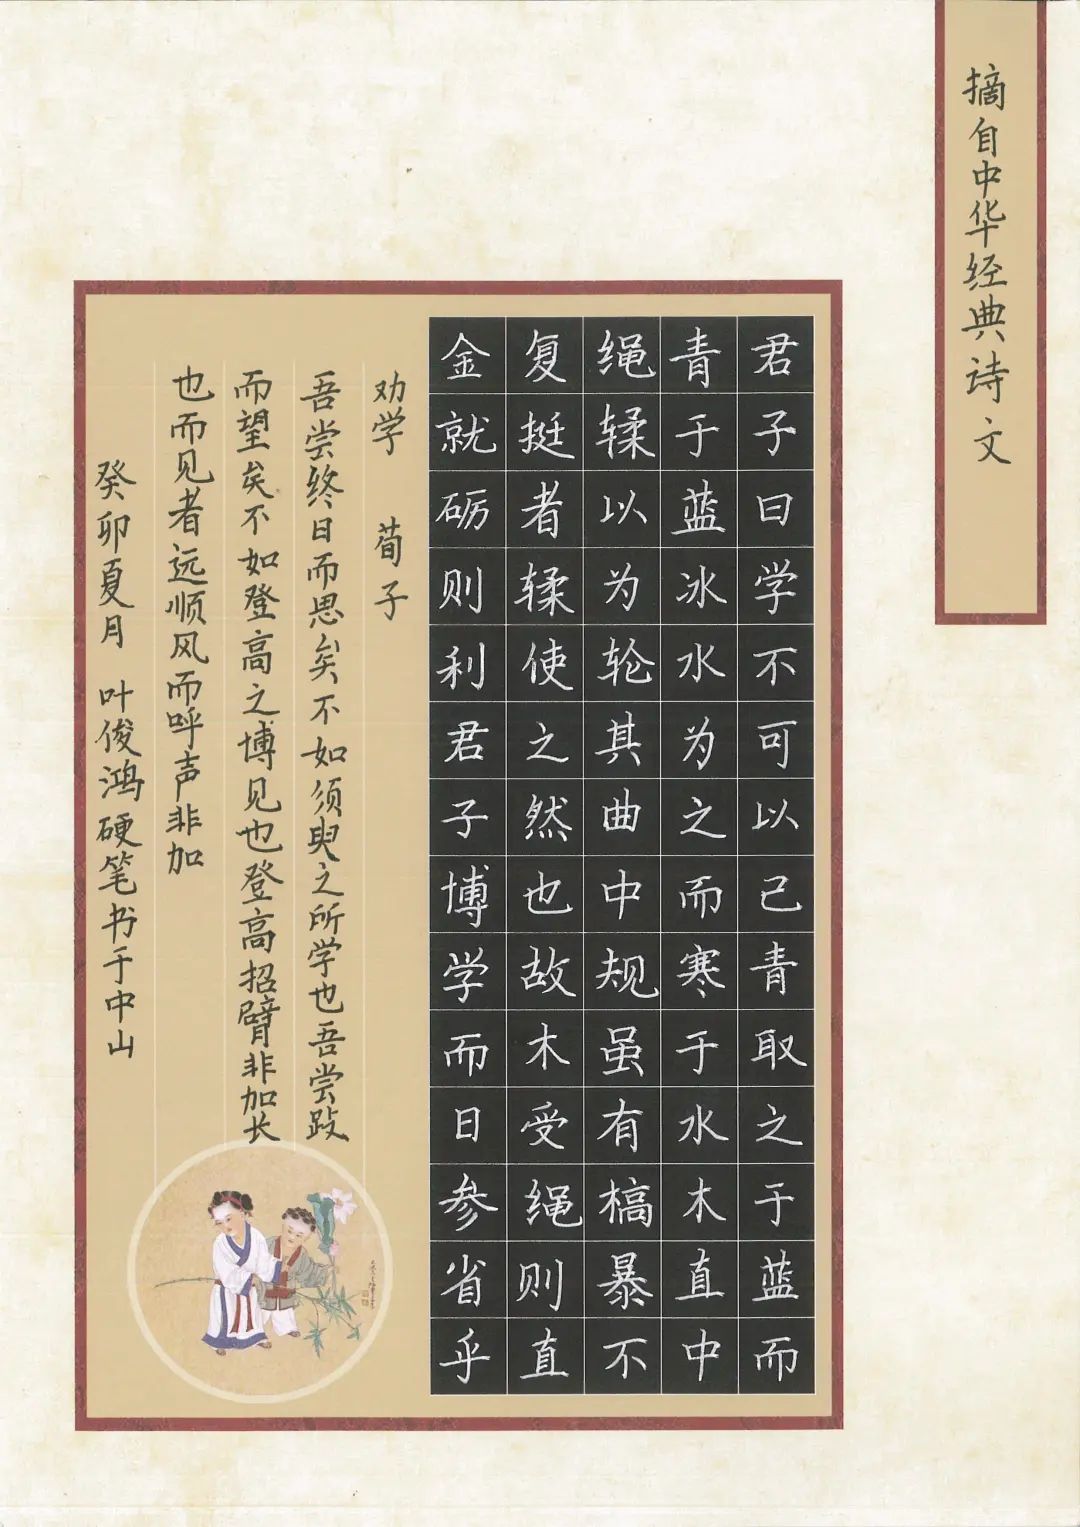 摘自中华经典诗文
君子曰学不可以已青取之于蓝而
青于蓝冰水为之而寒于水木直中
绳𫐓以为轮其曲中规虽有槁暴不
复挺者𫐓使之然也故木受绳则直
金就砺则利君子博学而日参省乎
劝学 荀子
吾尝终日而思矣不如须臾之所学也吾尝跂
而望矣不如登高之博见也登高招臂非加长
也而见者远顺风而呼声非加
癸卯夏月 叶俊鸿硬笔书于中山